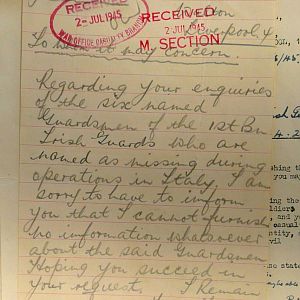 RECEIVED
2- JUL 1945
WAR OFFICE CASUALTY BRANCH
RECEIVED
M. SECTION
Liverpool 4
To whom it may concern.
Regarding your enquiries
of the six named
Guardsmen of the 1st Bn
Irish Guards who are
named as missing during
operations in Italy, I am
sorry to have to inform
you that I cannot furnish
no information whatsoever
about the said Guardsmen
Hoping you succeed in
your request. I Remain